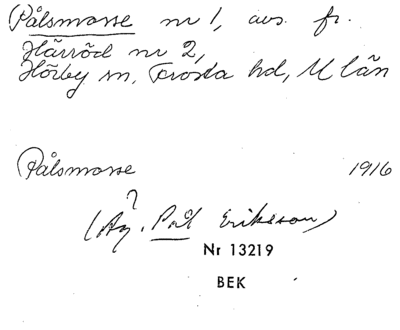 Pålsmosse nr 1, avs. fr.
Härröd nr 2,
Hörby sn, Frosta hd, M län
Pålsmosse 1916
?
(Äg. Pål Eriksson)
Nr 13219
BEK